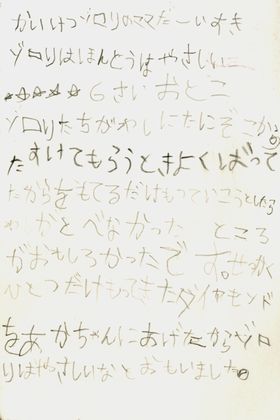 かいけつゾロリのママだーいすき
ゾロリはほんとうはやさしいに
★★★★★ 6さい おとこ
ゾロリたちがわしにたにぞこから
たすけてもらうときよくばって
たからをもてるだけもっていこうとしたら
わしがとべなかったところ
がおもしろかったです。せっかく
ひとつだけもってきたダイヤモンド
をあかちゃんにあげたからゾロ
リはやさしいなとおもいました。